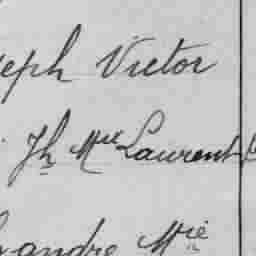 seph Victor
Jh Mie Laurent
xandre Mie